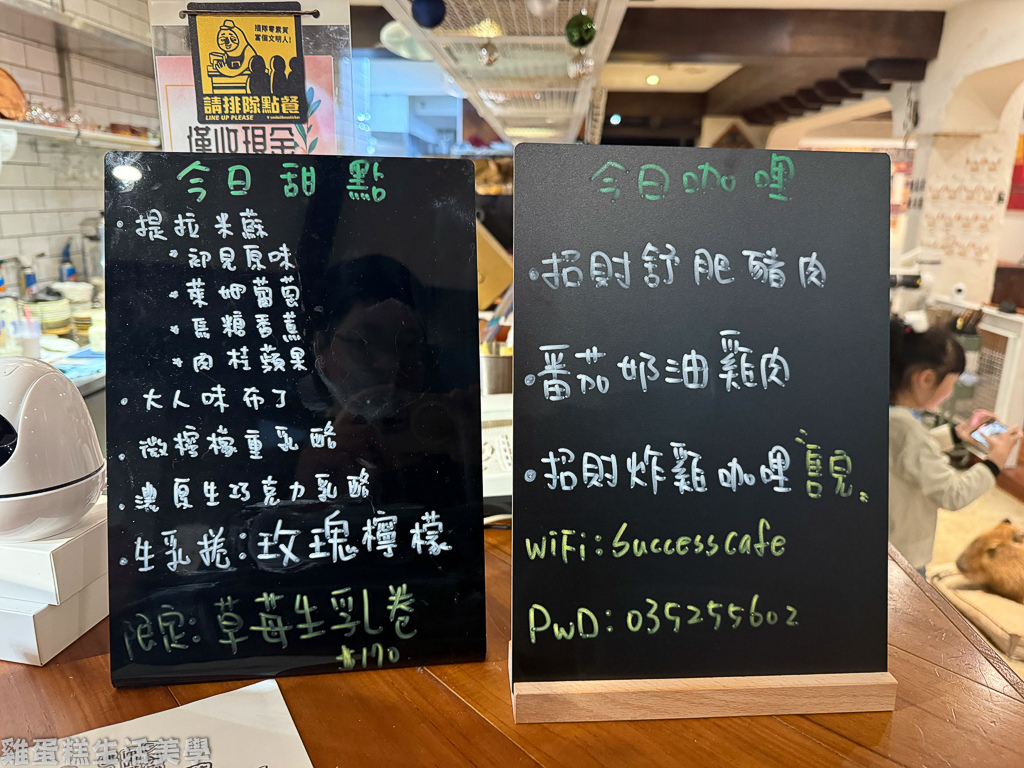 擋隊零素質
當個文明人!
請排隊點餐
LINE UP PLEASE
僅收現金
今日甜點
• 提拉米蘇
* 初見原味
* 萊姆葡萄
* 烏糖香蕉
* 肉桂蘋果
• 大人味布丁
• 微檸檬重乳酪
• 濃厚生巧克力乳酪
• 生乳捲:玫瑰檸檬
限定:草莓生乳卷
$170
今日咖哩
• 招財舒肥豬肉
• 番茄奶油雞肉
• 招財炸雞咖哩"售完"
WiFi:Successcafe
PWD:035255602
雞蛋糕生活美學